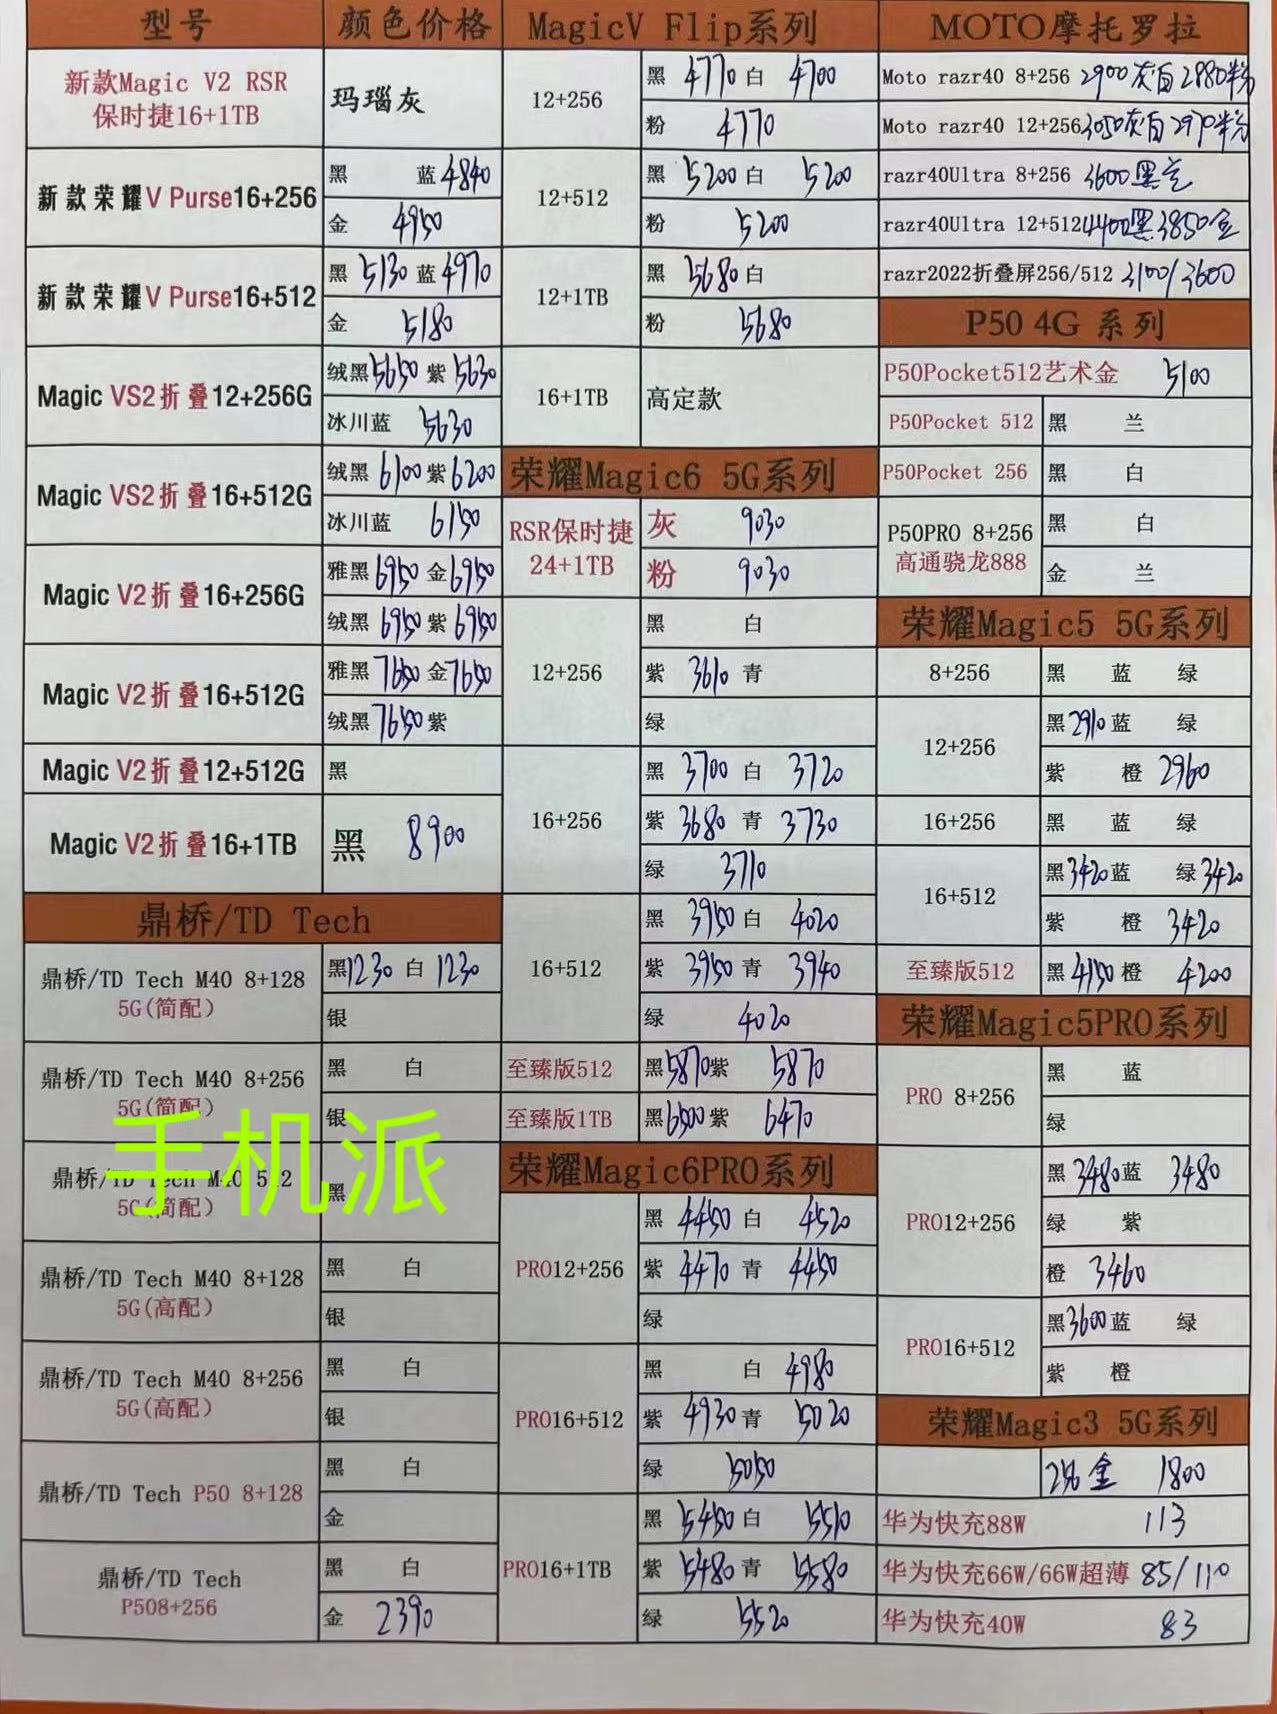 型号 颜色价格
新款Magic V2 RSR
保时捷16+1TB
玛瑙灰
新款荣耀V Purse16+256
黑 蓝4840
金 4950
新款荣耀V Purse16+512
黑 5130 蓝4970
金 5180
Magic VS2折叠12+256G
绒黑5650 紫 5630
冰川蓝 5630
Magic VS2折叠16+512G
绒黑6100紫6200
冰川蓝 6150
Magic V2折叠16+256G
雅黑6950金6950
绒黑6950紫6950
Magic V2折叠16+512G
雅黑7650金7650
绒黑7650紫
Magic V2折叠12+512G
黑
Magic V2折叠16+1TB
黑 8900
鼎桥/TD Tech
鼎桥/TD Tech M40 8+128
5G(简配)
黑1230 白 1230
银
鼎桥/TD Tech M40 8+256
5G(简配)
黑 白
银
手机派
鼎桥/TD Tech M40 512
5G(简配)
黑
鼎桥/TD Tech M40 8+128
5G(高配)
黑 白
银
鼎桥/TD Tech M40 8+256
5G(高配)
黑 白
银
鼎桥/TD Tech P50 8+128
黑 白
金
鼎桥/TD Tech
P508+256
黑 白
金 2390
MagicV Flip系列
12+256
黑 4770 白 4700
粉 4770
12+512
黑 5200 白 5200
粉 5200
12+1TB
黑 5680 白
粉 5680
16+1TB
高定款
荣耀Magic6 5G系列
RSR保时捷
24+1TB
灰 9030
粉 9030
12+256
黑 白
紫 3610 青
绿
16+256
黑 3700 白 3720
紫 3680 青 3730
绿 3710
16+512
黑 3950 白 4020
紫 3950 青 3940
绿 4020
至臻版512
黑5870紫 5870
至臻版1TB
黑6500紫 6470
荣耀Magic6PRO系列
PRO12+256
黑 4450 白 4520
紫 4470 青 4450
绿
PRO16+512
黑 白 4980
紫 4930 青 5020
绿 5050
PRO16+1TB
黑 5450白 5510
紫 5480青 5580
绿 5520
MOTO摩托罗拉
Moto razr40 8+256 2900灰白2880米粉
Moto razr40 12+256 3050灰白2970米粉
razr40Ultra 8+256 3600黑兰
razr40Ultra 12+512 4400黑3850金
razr2022折叠屏256/512 3100/3600
P50 4G 系列
P50Pocket512艺术金 5100
P50Pocket 512
黑 兰
P50Pocket 256
黑 白
P50PRO 8+256
高通骁龙888
黑 白
金 兰
荣耀Magic5 5G系列
8+256
黑 蓝 绿
12+256
黑2910蓝 绿
紫 橙 2960
16+256
黑 蓝 绿
16+512
黑3420蓝 绿3420
紫 橙 3420
至臻版512
黑4150橙 4200
荣耀Magic5PRO系列
PRO 8+256
黑 蓝
绿
PRO12+256
黑 3480蓝 3480
绿 紫
橙 3460
PRO16+512
黑3600蓝 绿
紫 橙
荣耀Magic3 5G系列
256 金 1800
华为快充88W 113
华为快充66W/66W超薄 85/110
华为快充40W 83